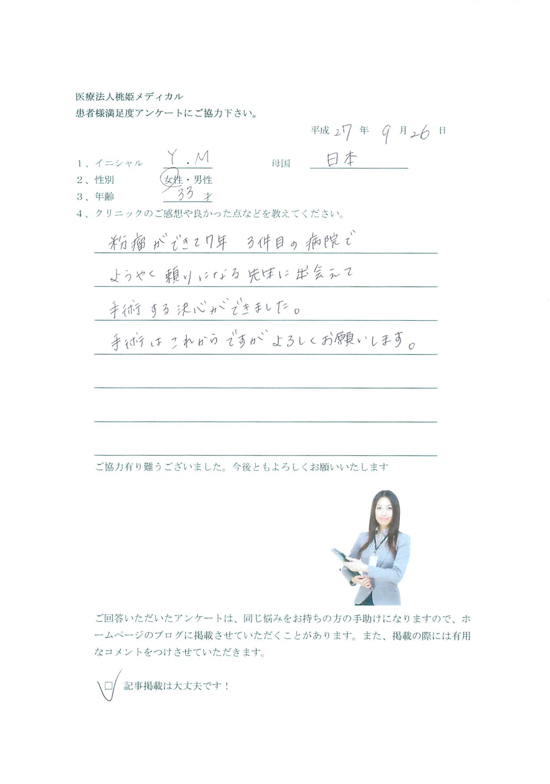 医療法人桃姫メディカル
患者様満足度アンケートにご協力下さい。
平成 27 年 9 月 26 日
1、イニシャル Y . M 母国 日本
2、性別 女性・男性
3、年齢 33 才
4、クリニックのご感想や良かった点などを教えてください。
粉瘤ができて7年 3件目の病院で
ようやく頼りになる先生に出会えて
手術する決心ができました。
手術はこれからですがよろしくお願いします。
ご協力有り難うございました。今後ともよろしくお願いいたします
ご回答いただいたアンケートは、同じ悩みをお持ちの方の手助けになりますので、ホ
ームページのブログに掲載させていただくことがあります。また、掲載の際には有用
なコメントをつけさせていただきます。
□ 記事掲載は大丈夫です！